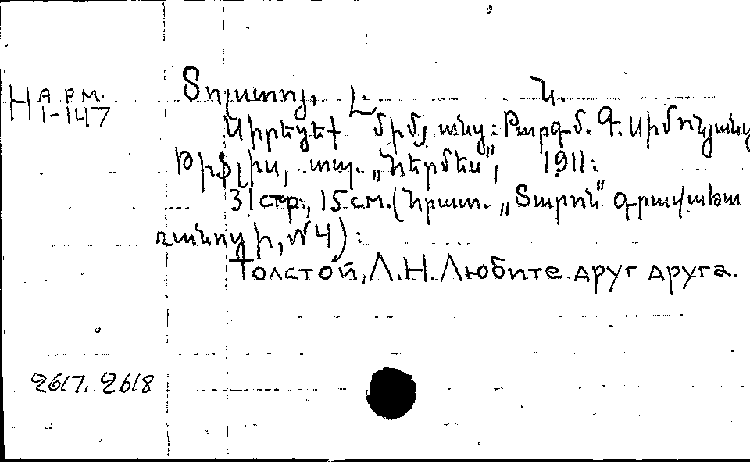 Н арм.
1-147
Տոլստոյ, Լ. Ն.
Սիրեցէք միմյանց: Թարգմ. Գ. Սիմոնյանց
Թիֆլիս, տպ. „Հերմես", 1911:
31 стр., 15 см. (Հրատ. „Տարոն" գրավաճա
ռանոցի, №4):
Толстой, Л.Н. Любите друг друга.
2617. 2618